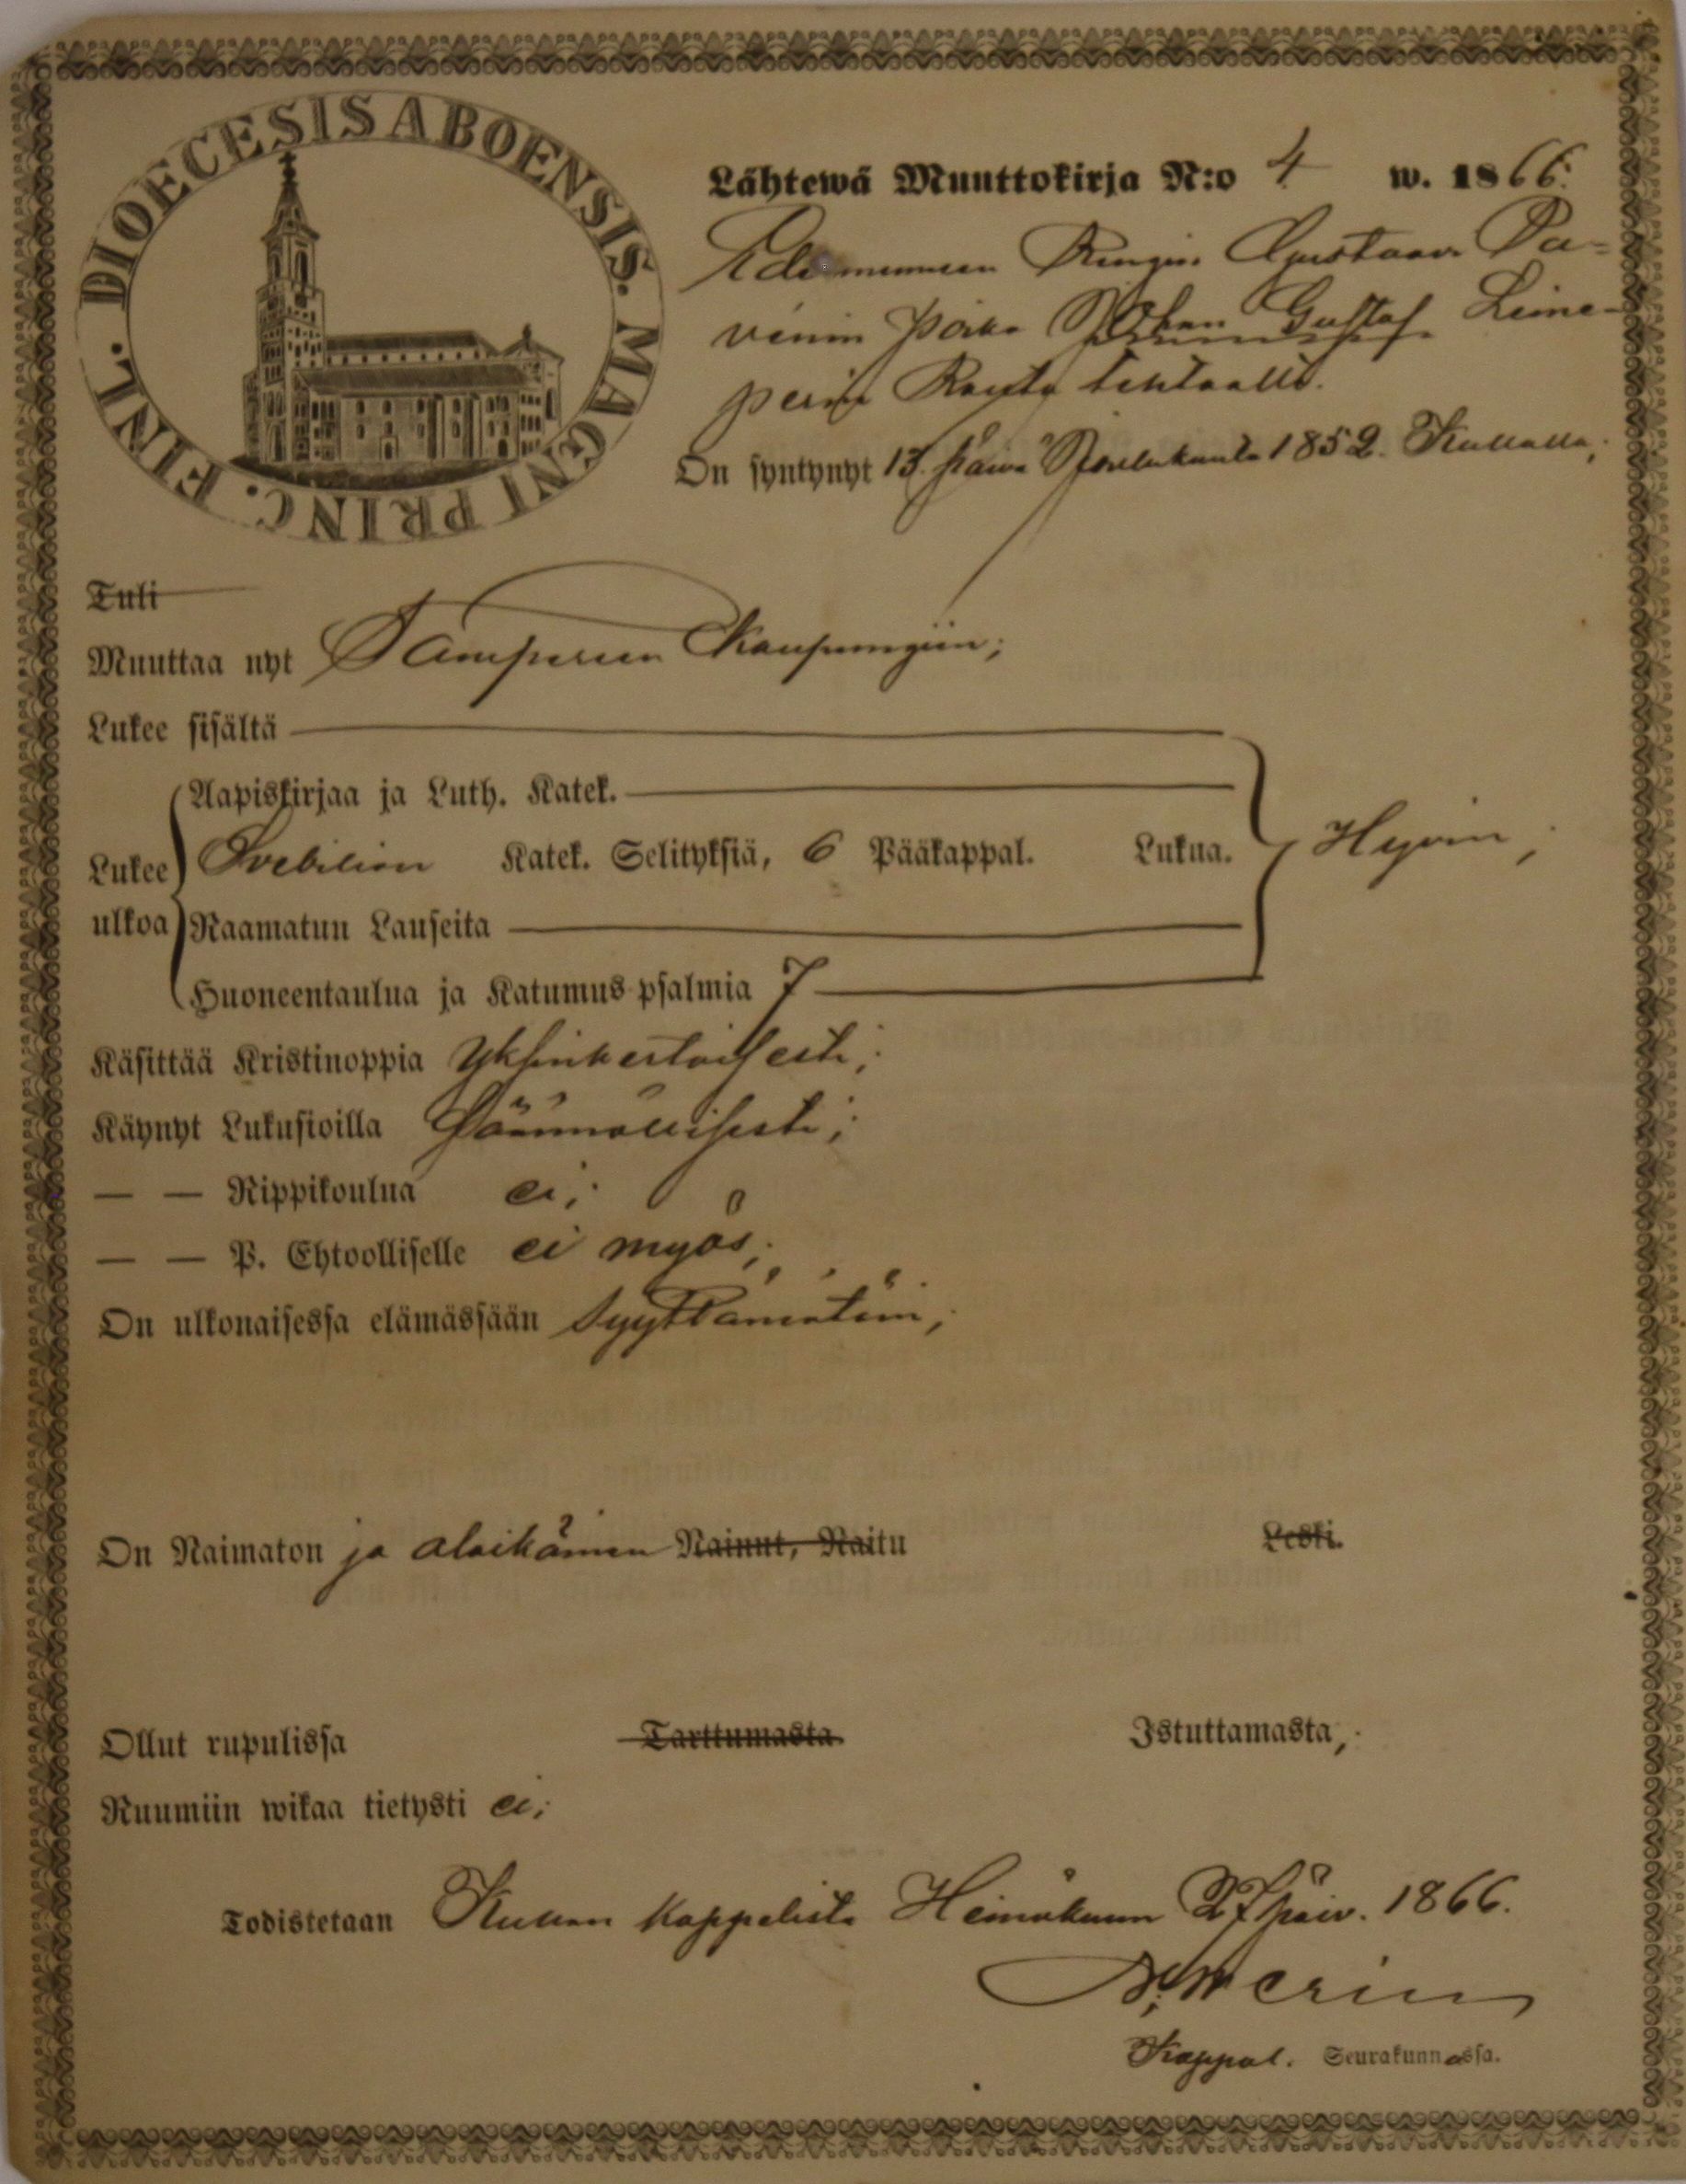 DIOECESIS ABOENSIS. MAGNI PRINC. FINL.
Lähtewä Muuttokirja N:o 4 w. 1866.
Edesmenneen Rengin Gustaav Pa-
venin Poika Johan Gustaf Leine-
perin Rauta tehtaalta.
On syntynyt 13. päivä Joulukuuta 1852. Kullaalla;
Tuli
Muuttaa nyt Tampereen Kaupungiin;
Lukee sisältä
Aapiskirjaa ja Luth. Katek.
Lukee ulkoa Svebilion Katek. Selityksiä, 6 Pääkappal. Lukua. Hyvin;
Raamatun Lauseita
Huoneentaulua ja Katumus psalmia 7
Käsittää Kristinoppia Yksinkertaisesti;
Käynyt Lukusioilla Säännöllisesti;
— — Rippikoulua ei;
— — P. Ehtoolliselle ei myös;
On ulkonaisessa elämässään syyttämätöin;
On Naimaton ja alaikäinen Nainut, Naitu Leski.
Ollut rupulissa Tarttumasta. Istuttamasta;
Ruumiin wikaa tietysti ei;
Todistetaan Kullaan Kappelista Heinäkuun 27 päiv. 1866.
Kappal. Seurakunnassa.